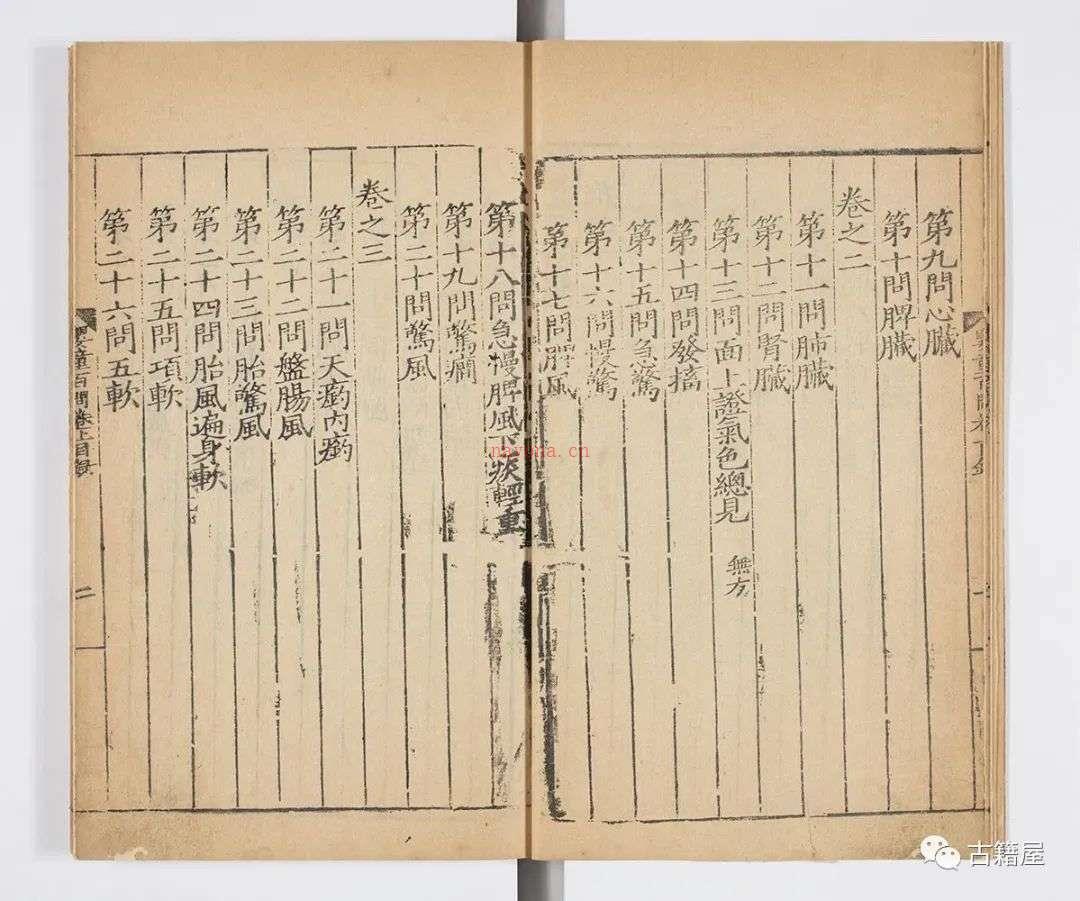 第九問心臟
第十問脾臟
卷之二
第十一問肺臟
第十二問腎臟
第十三問面上證氣色總見 無方
第十四問發搐
第十五問急驚
第十六問慢驚
第十七問脾風
第十八問急慢脾風下痰輕重
第十九問驚癇
第二十問驚風
卷之三
第二十一問天瘹內瘹
第二十二問盤腸風
第二十三問胎驚風
第二十四問胎風遍身軟
第二十五問項軟
第二十六問五軟
嬰童百問卷上目錄
二
nayona.cn
古籍屋